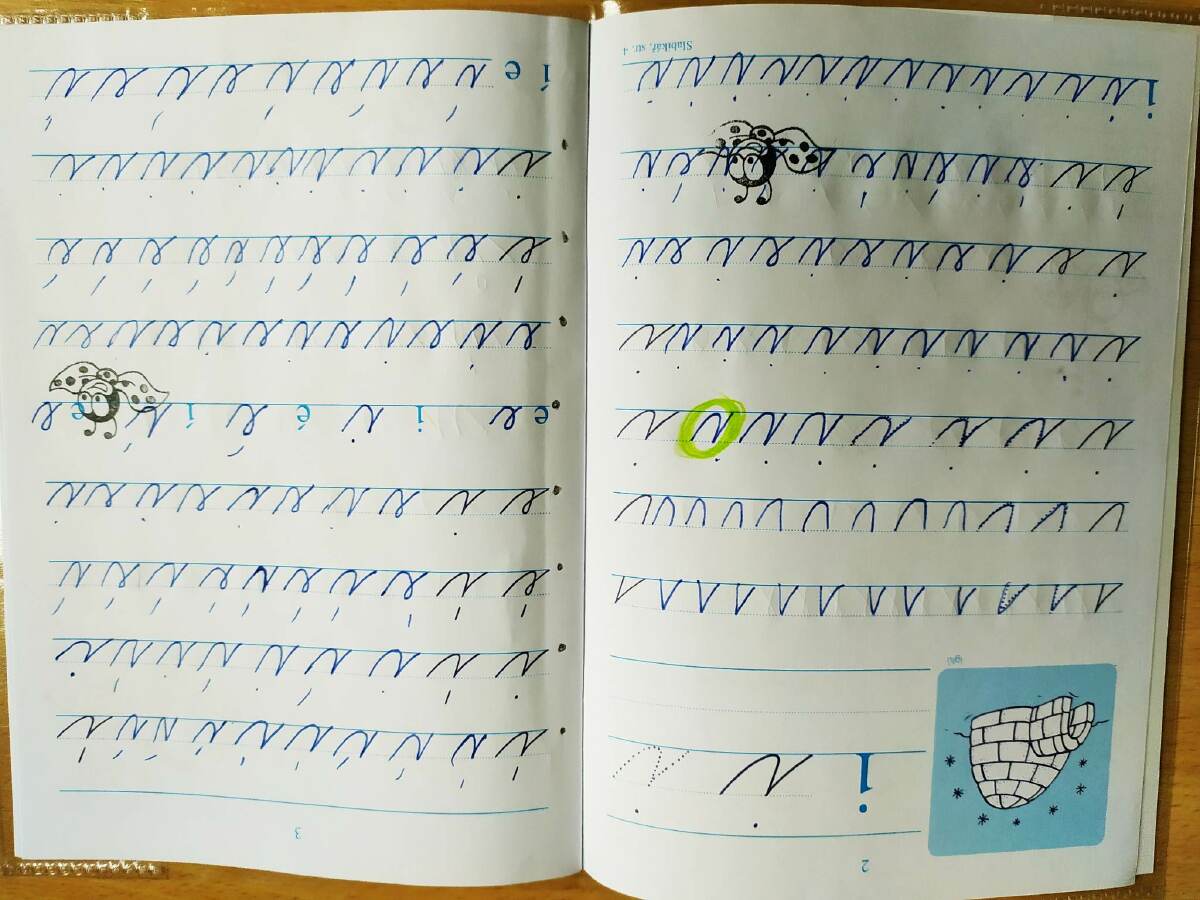 2
i i i
iglú
i i i i i i i i
i i i i i i i i i i i
i e i e i e i e i e i
i i i i i i i i i i i i i i
Slabikář, str. 4
3
í í í í í í í í í í í
i í i í i í i í i í i
é í é í é í é í é í í
e i e i e i e i e i
e e i i é é í í e e
e i e i e i e i e i e i e i
é é é é é é é é é é é é
i i i i i i i i i i i i
í e í e í e í e í e í